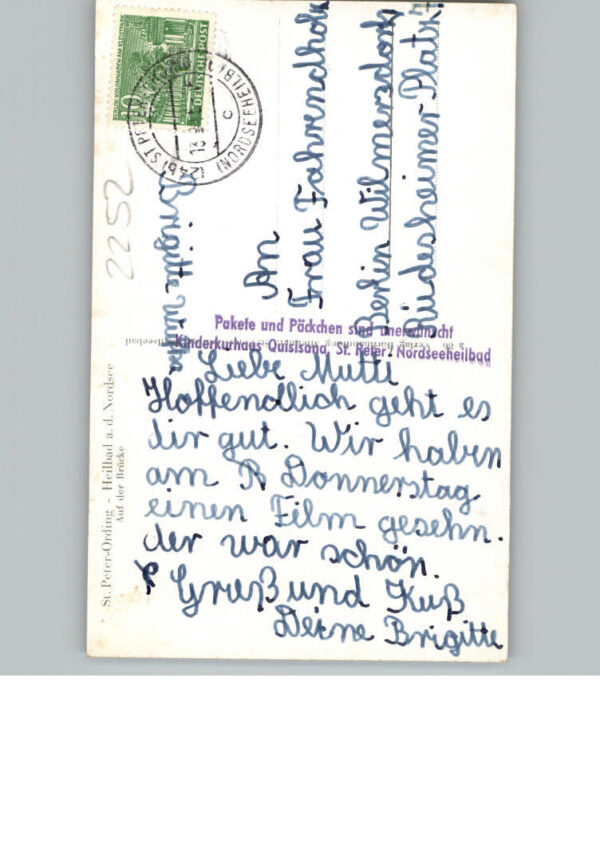 Liebe Mutti
Hoffendlich geht es
dir gut. Wir haben
am Donnerstag
einen Film gesehn.
der war schön.
Gruß und Kuß
Deine Brigitte
An
Frau Fahrendholz
Berlin Wilmersdorf
Rüdesheimer-Platz
Brigitte
Pakete und Päckchen sind unerwünscht
Kinderkurhaus Quisisana, St. Peter-Nordseeheilbad
St. Peter-Ording - Heilbad a. d. Nordsee
Auf der Brücke
DEUTSCHE POST
10
(24b) ST. PETER
(NORDSEEHEILB)
c
2252